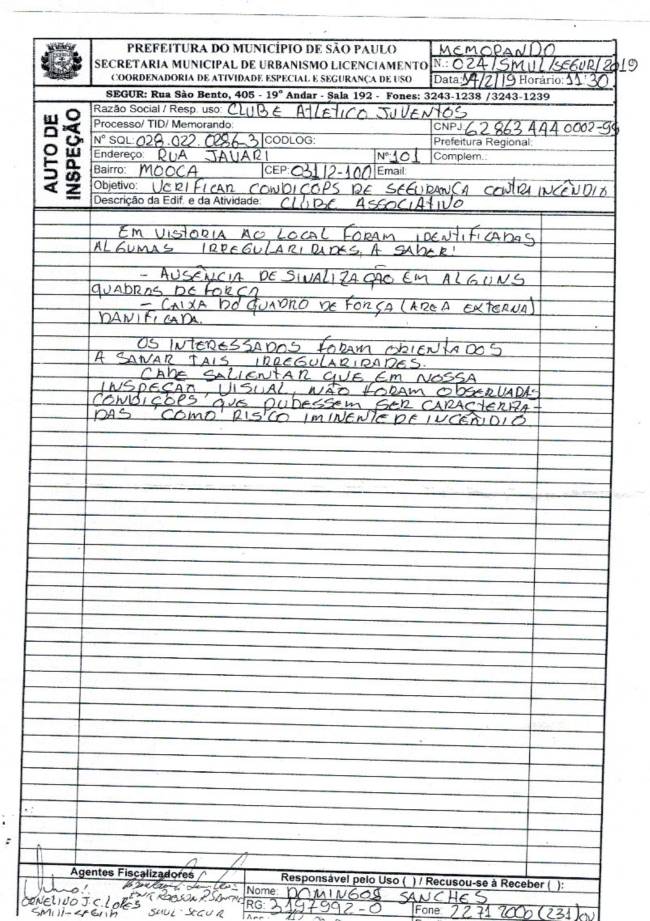 PREFEITURA DO MUNICÍPIO DE SÃO PAULO
SECRETARIA MUNICIPAL DE URBANISMO LICENCIAMENTO
COORDENADORIA DE ATIVIDADE ESPECIAL E SEGURANÇA DE USO
MEMORANDO
N.: 024/SMUL/SEGUR/2019
Data: 14/2/19 Horário: 11:30
SEGUR: Rua São Bento, 405 - 19º Andar - Sala 192 - Fones: 3243-1238 /3243-1239
AUTO DE INSPEÇÃO
Razão Social / Resp. uso: CLUBE ATLÉTICO JUVENTOS
Processo/ TID/ Memorando: CNPJ: 62 863 444 0002-99
Nº SQL: 028.022.0286-3 CODLOG: Prefeitura Regional:
Endereço: RUA JAVARI Nº: 101 Complem.:
Bairro: MOOCA CEP: 03112-100 Email:
Objetivo: VERIFICAR CONDIÇOPS DE SEGURANÇA CONTRA INCÊNDIO
Descrição da Edif. e da Atividade: CLUBE ASSOCIATIVO
EM VISTORIA AO LOCAL FORAM IDENTIFICADAS
ALGUMAS IRREGULARIDADES, A SABER:
- AUSÊNCIA DE SINALIZAÇÃO EM ALGUNS
QUADROS DE FORÇA
- CAIXA DO QUADRO DE FORÇA (AREA EXTERNA)
DANIFICADA.
OS INTERESSADOS FORAM ORIENTADOS
A SANAR TAIS IRREGULARIDADES.
CABE SALIENTAR QUE EM NOSSA
INSPEÇÃO VISUAL, NÃO FORAM OBSERVADAS
CONDIÇOPS QUE PUDESSEM SER CARACTERIZA-
DAS COMO RISCO IMINENTE DE INCÊNDIO
Agentes Fiscalizadores
Responsável pelo Uso ( ) / Recusou-se à Receber ( ):
Nome: DOMINGOS SANCHES
J.C. LOPES
RG: 3197992-0 Fone: 2271 2000 (231)
SMUL-SEGUR SMUL-SEGUR